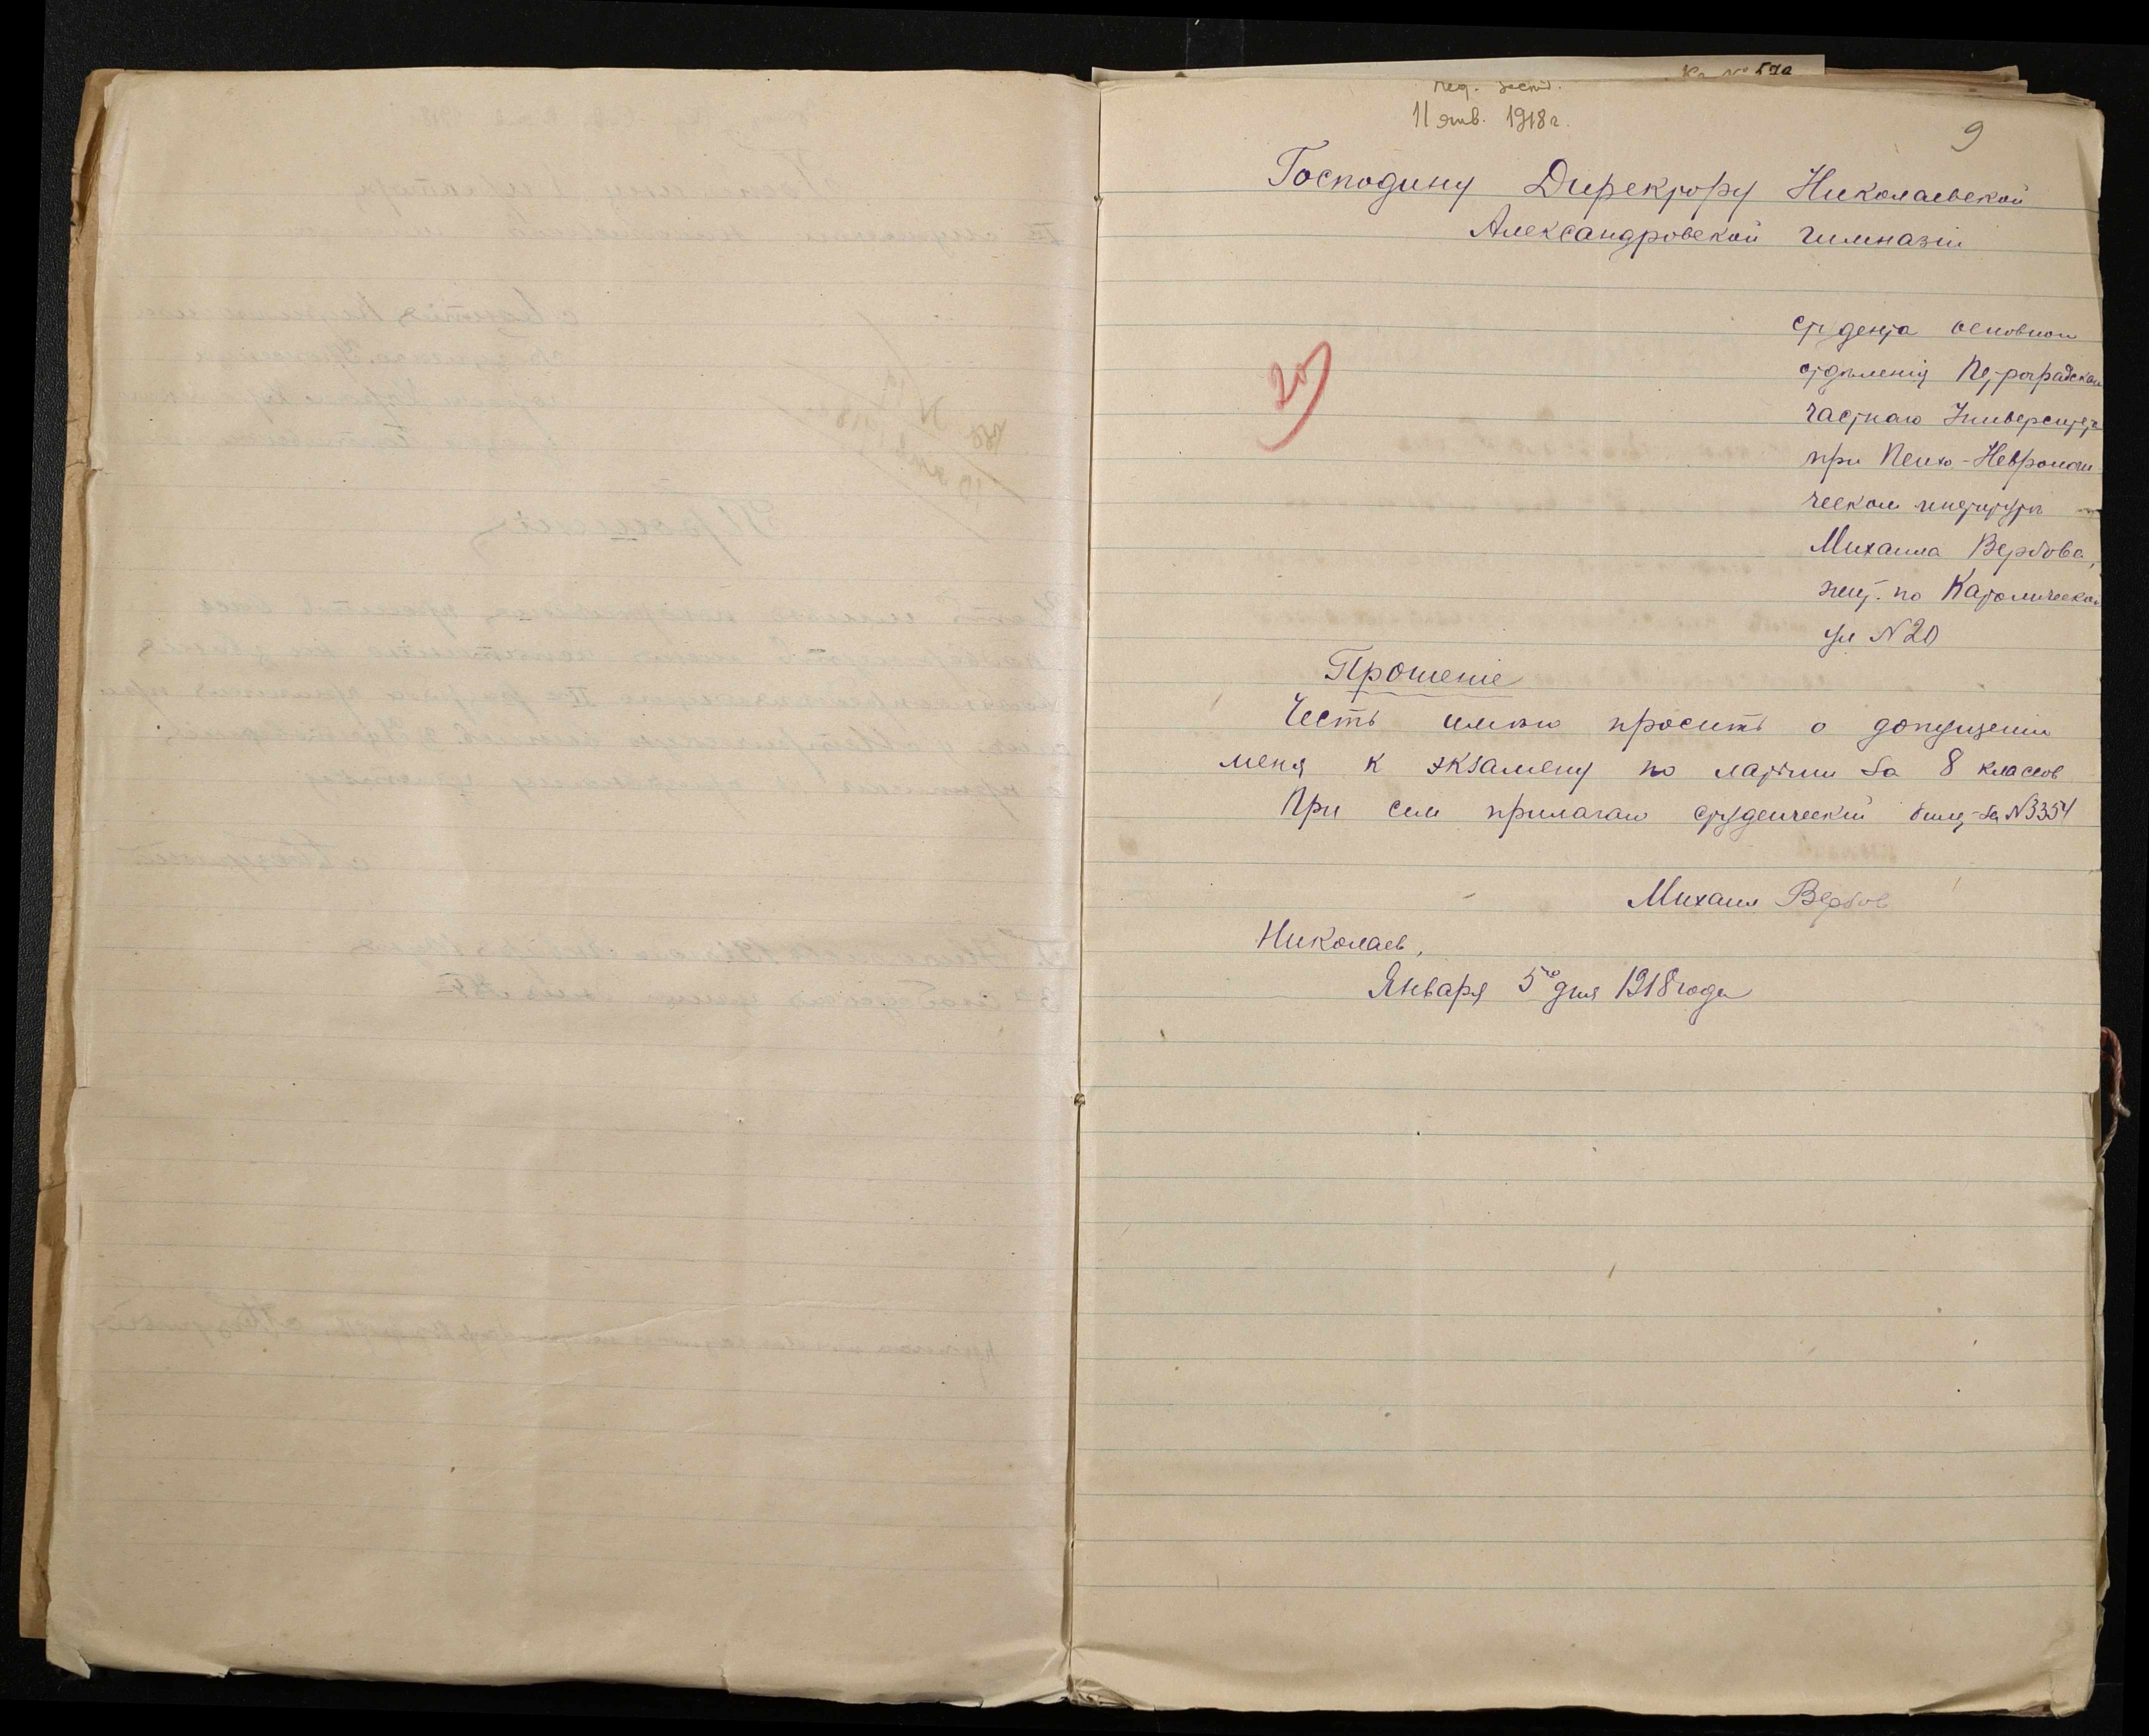 Кр № 570
пед. засед.
11 янв. 1918 г.
9
Господину Директору Николаевской
Александровской гимназіи
20
студента основнаго
отдѣленія Петроградскаго
частнаго Университета
при Психо-Неврологи
ческом институтѣ
Михаила Вербова,
жит. по Католической
ул N 20
Прошеніе
Честь имѣю просить о допущеніи
меня к экзамену по латыни за 8 классов
При сем прилагаю студенческій билет за N3354
Михаил Вербов
Николаев,
Января 5го дня 1918 года